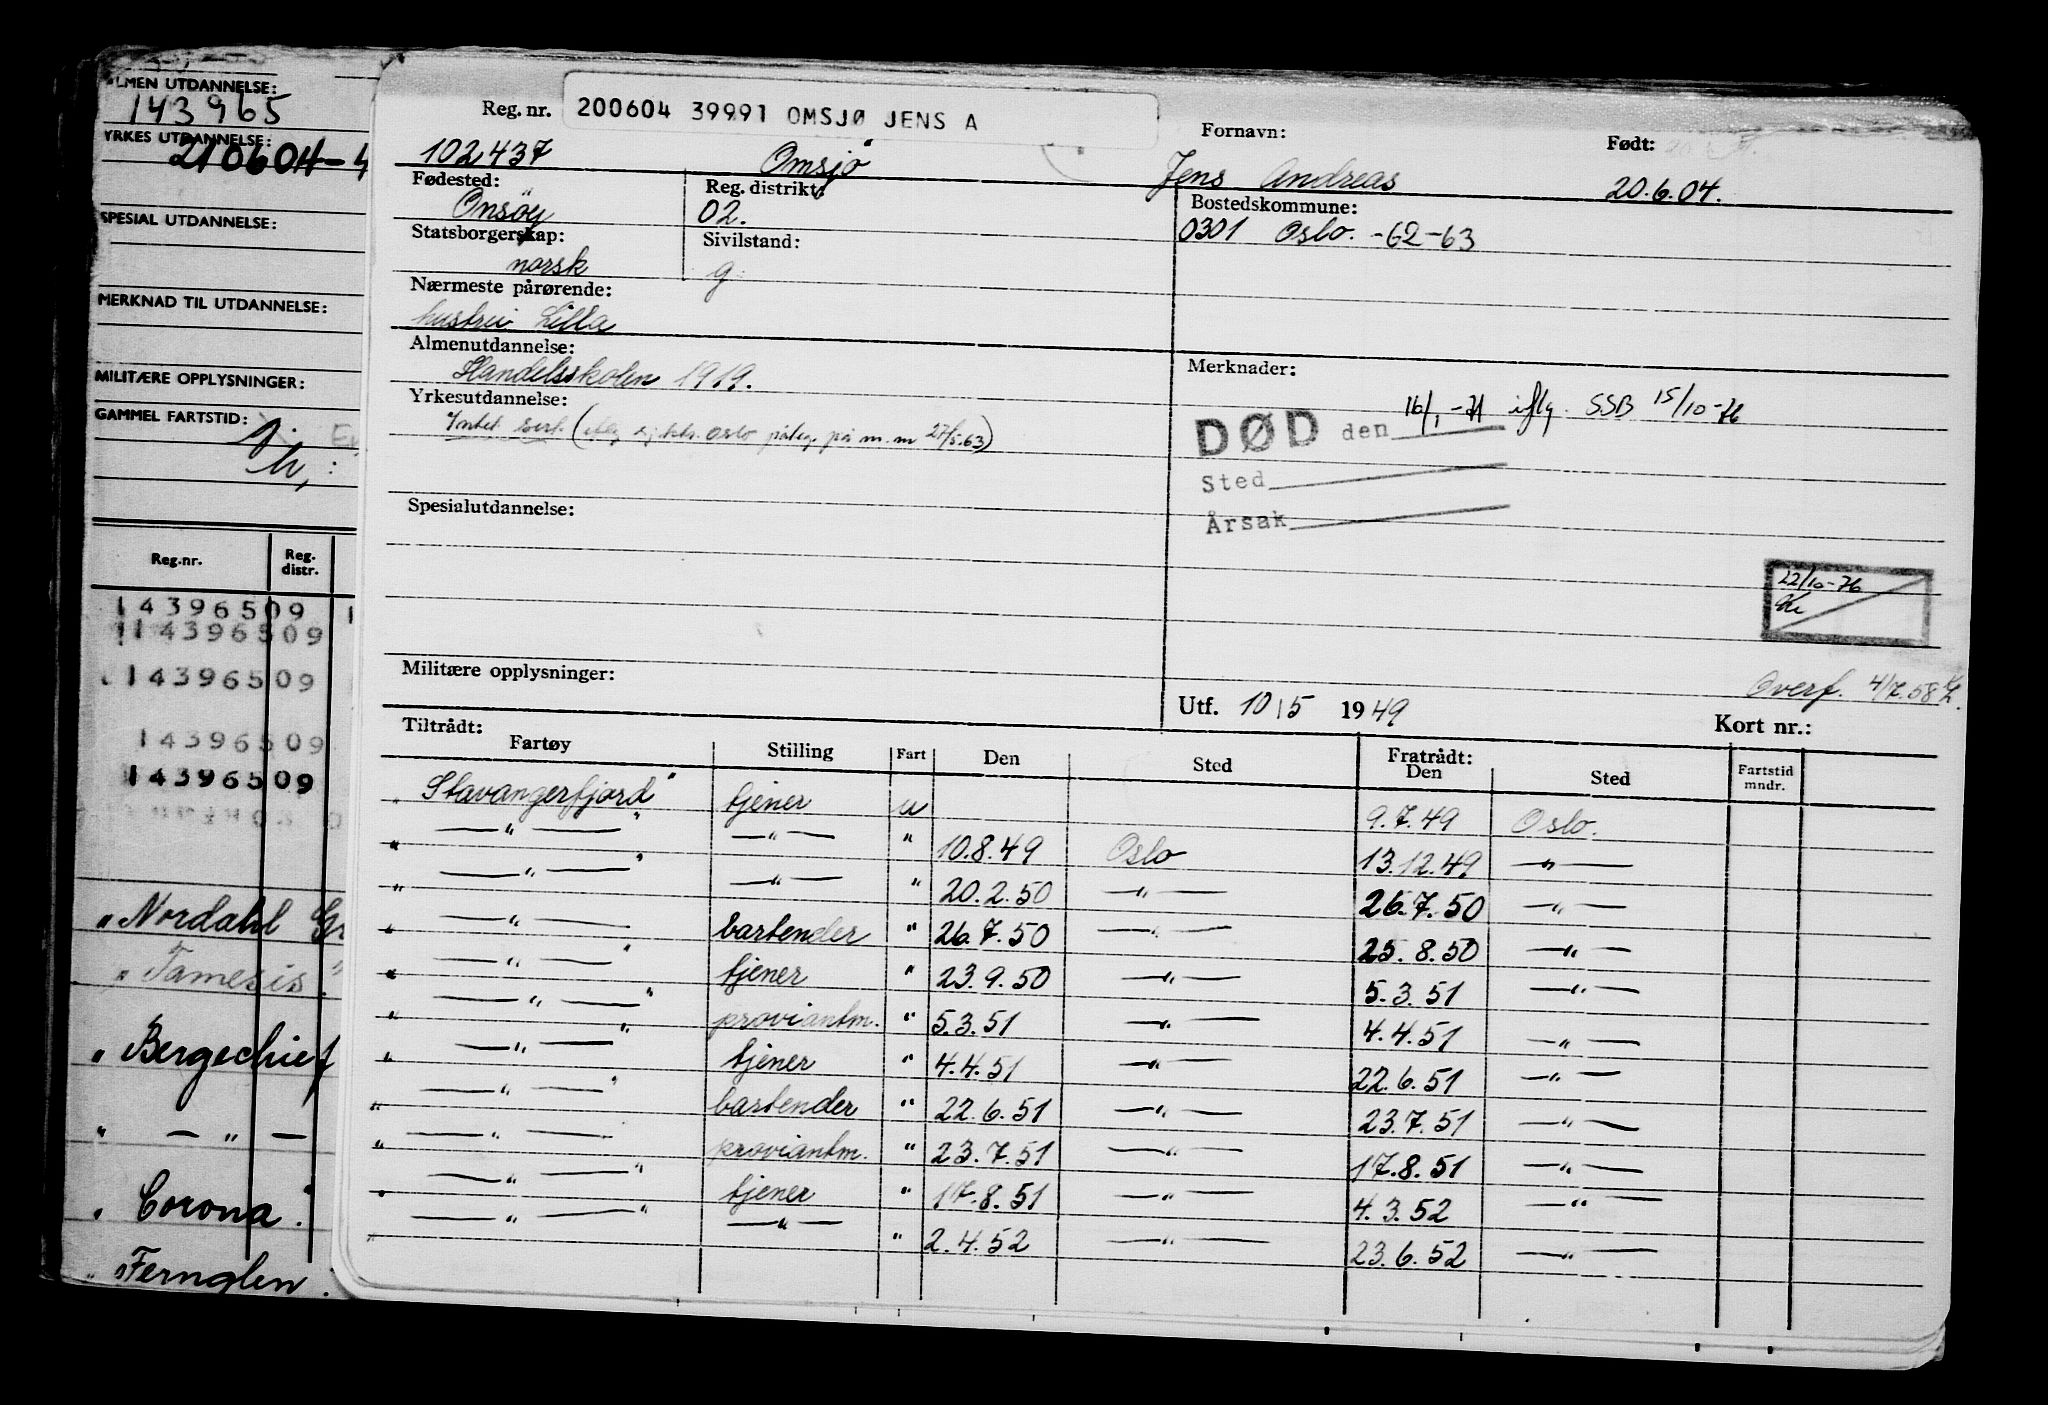 ALMEN UTDANNELSE:
143965
YRKES UTDANNELSE:
210604-4
SPESIAL UTDANNELSE:
MERKNAD TIL UTDANNELSE:
MILITÆRE OPPLYSNINGER:
GAMMEL FARTSTID:
Reg.nr. Reg. distr.
14396509
14396509
14396509
14396509
14396509
"Nordahl Gr
"Tamesis."
"Bergechief
" — " —
"Corona"
"Fernglen
Reg. nr. 200604 39991 OMSJØ JENS A
Fornavn: Født:
102437 Omsjö Jens Andreas 20.6.04.
Fødested: Reg. distrikt: Bostedskommune:
Onsöy 02. 0301 Oslo. -62-63
Statsborgerskap: Sivilstand:
norsk g.
Nærmeste pårørende:
hustru Lilla
Almenutdannelse: Merknader:
Handelsskolen 1919.
Yrkesutdannelse:
DØD den 16/1-71 iflg. SSB 15/10-76
Sted
Årsak
Spesialutdannelse:
22/10-76
Militære opplysninger:
Overf. 4/7.58
Utf. 10/5 1949 Kort nr.:
Tiltrådt: Fratrådt:
Fartøy Stilling Fart Den Sted Den Sted Fartstid mndr.
"Stavangerfjord" tjener u 9.7.49 Oslo.
" —"— " —"— " 10.8.49 Oslo 13.12.49 —"—
" —"— " —"— " 20.2.50 —"— 26.7.50 —"—
" —"— bartender " 26.7.50 —"— 25.8.50 —"—
" —"— " tjener " 23.9.50 —"— 5.3.51 —"—
" —"— " proviantm. " 5.3.51 —"— 4.4.51 —"—
" —"— " tjener " 4.4.51 —"— 22.6.51 —"—
" —"— " bartender " 22.6.51 —"— 23.7.51 —"—
" —"— proviantm. " 23.7.51 —"— 17.8.51 —"—
" —"— " tjener " 17.8.51 —"— 4.3.52 —"—
" —"— " —"— " 2.4.52 —"— 23.6.52 —"—